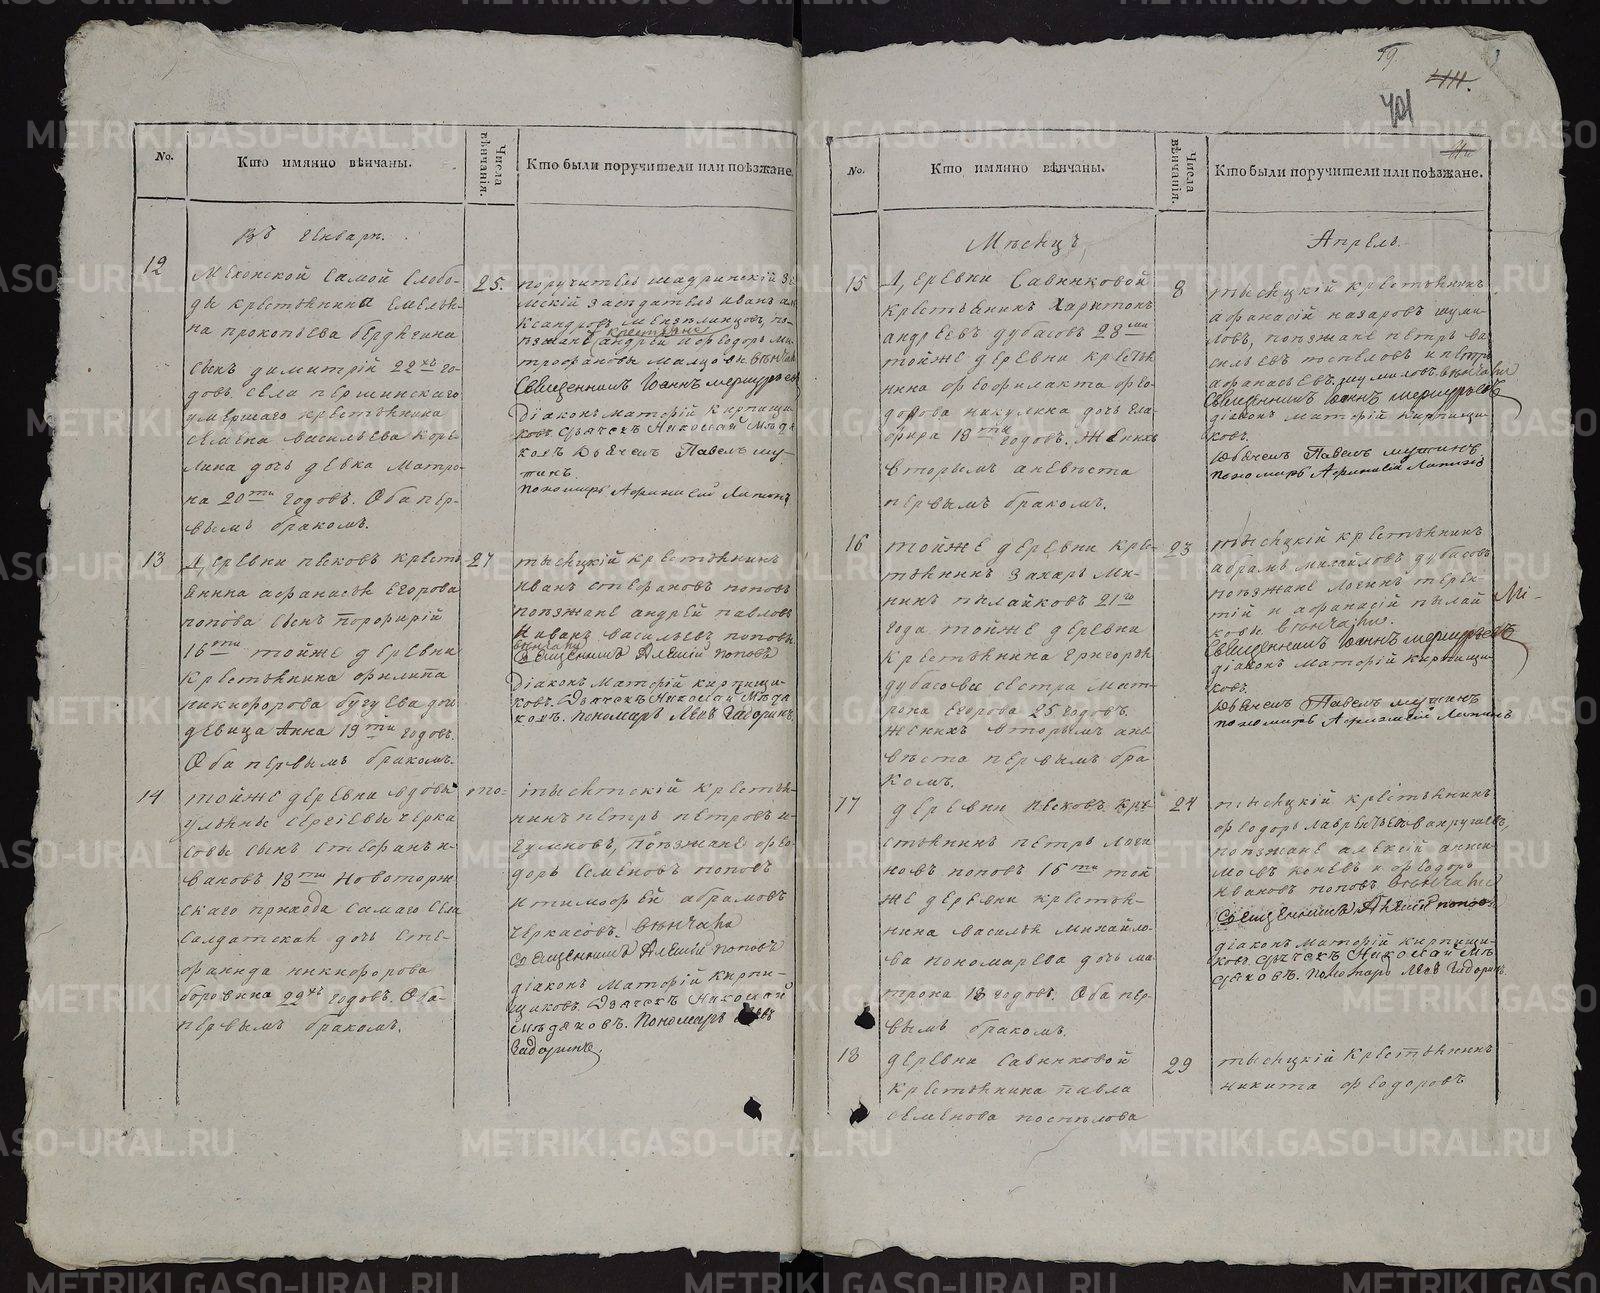 No.
Кто имянно вѣнчаны.
Числа вѣнчанія.
Кто были поручители или поѣзжане.
Въ Генварѣ.
12
Мехонской самой слобо-
ды крестьянина Емелья-
на Прокопьева Бердюгина
сынъ Димитрій 22хъ го-
довъ. Села Першинскаго
умершаго крестьянина
Семена Васильева
дочь девка Матро-
на 20ти годовъ. Оба пер-
вымъ бракомъ.
25.
поручители Шадринскій зе-
мскій заседатель Иванъ Але-
ксандровъ по-
крестьяне
езжане Андрей и Феодоръ Ми-
трофановы венчали
Священникъ Іоаннъ Меркурьевъ
Діаконъ Матфій Кирпищи-
ковъ. Дьячекъ Николай
Дьячекъ Павелъ Му-
тинъ
Пономарь Афанасий Ляпинъ
13
Деревни Песковъ кресть-
янина Афанасья Егорова
Попова сынъ Порфирій
16ти тойже деревни
крестьянина Филипа
Никифорова дочь
девица Анна 19ти годовъ.
Оба первымъ бракомъ.
27
тысяцкій крестьянинъ
Иванъ Стефановъ Поповъ
поезжане Андрей Павловъ
и Иванъ Васильевъ Поповы
венчали
Священникъ Алексій Поповъ
Діаконъ Матфій Кирпищи-
ковъ. Дьячекъ Николай Медя-
ковъ. Пономарь Левъ Гадоринъ.
14
тойже деревни вдовы
Ульяны Сергіевы Черка-
совы сынъ Стефанъ И-
вановъ 18ти Новоторж-
скаго прихода самаго села
салдатская дочь Сте-
фанида Никифорова
Боровина 22хъ годовъ. Оба
первымъ бракомъ.
то-
тысятскій крестья-
нинъ Петръ Петровъ И-
гумновъ, поезжане Фео-
доръ Семеновъ Поповъ
и Тимофей Абрамовъ
Черкасовъ. венчали
Священникъ Алексій Поповъ
діаконъ Матфій Кирпи-
щиковъ. Дьячекъ Николай
Медяковъ. Пономарь Левъ
Гадоринъ.
19
411.
401
No.
Кто имянно вѣнчаны.
Числа вѣнчанія.
Кто были поручители или поѣзжане.
Мѣсяцъ
Апрель.
15
Деревни Савинковой
крестьянинъ Харитонъ
Андреевъ Дубасовъ 28ми
тойже деревни крестья-
нина Феофилакта Фео-
дорова Никулина дочь Гла-
фира 18ти годовъ. Женихъ
вторымъ а невеста
первымъ бракомъ.
8
тысяцкій крестьянинъ
Афанасій Назаровъ Шуми-
ловъ, поезжане Петръ Ва-
сильевъ Поспеловъ и Петръ
Афанасьевъ Шумиловъ венчали
Священникъ Іоаннъ Меркурьевъ
діаконъ Матфій Кирпищи-
ковъ.
Дьячекъ Павелъ Мутинъ
Пономарь Афанасий Ляпинъ
16
тойже деревни кре-
стьянинъ Захаръ Ми-
нинъ Пылайковъ 21го
года тойже деревни
крестьянина Григорья
Дубасова сестра Мат-
рона Егорова 25 годовъ.
Женихъ вторымъ а не-
веста первымъ бра-
комъ.
23
тысяцкій крестьянинъ
Абрамъ Михайловъ Дубасовъ
поезжане Логинъ Терен-
тій и Афанасій Пылай-
ковы венчали.
Священникъ Іоаннъ Меркурьевъ
діаконъ Матфій Кирпищи-
ковъ.
Дьячекъ Павелъ Мутинъ
Пономарь Афанасий Ляпинъ
17
Деревни Песковъ кре-
стьянинъ Петръ Логи-
новъ Поповъ 16ти той
же деревни крестья-
нина Василья Михайло-
ва Пономарева дочь Ма-
трона 18 годовъ. Оба пер-
вымъ бракомъ.
24
тысяцкій крестьянинъ
Феодоръ Лаврентьевъ
поезжане Алексій
Коневъ и Феодоръ
Ивановъ Поповъ венчали
Священникъ Алексій Поповъ
діаконъ Матфій Кирпищи-
ковъ. Дьячекъ Николай Ме-
дяковъ. Пономарь Левъ Гадоринъ.
18
Деревни Савинковой
крестьянина Павла
Семенова Поспелова
29
тысяцкій крестьянинъ
Никита Феодоровъ
METRIKI.GASO-URAL.RU